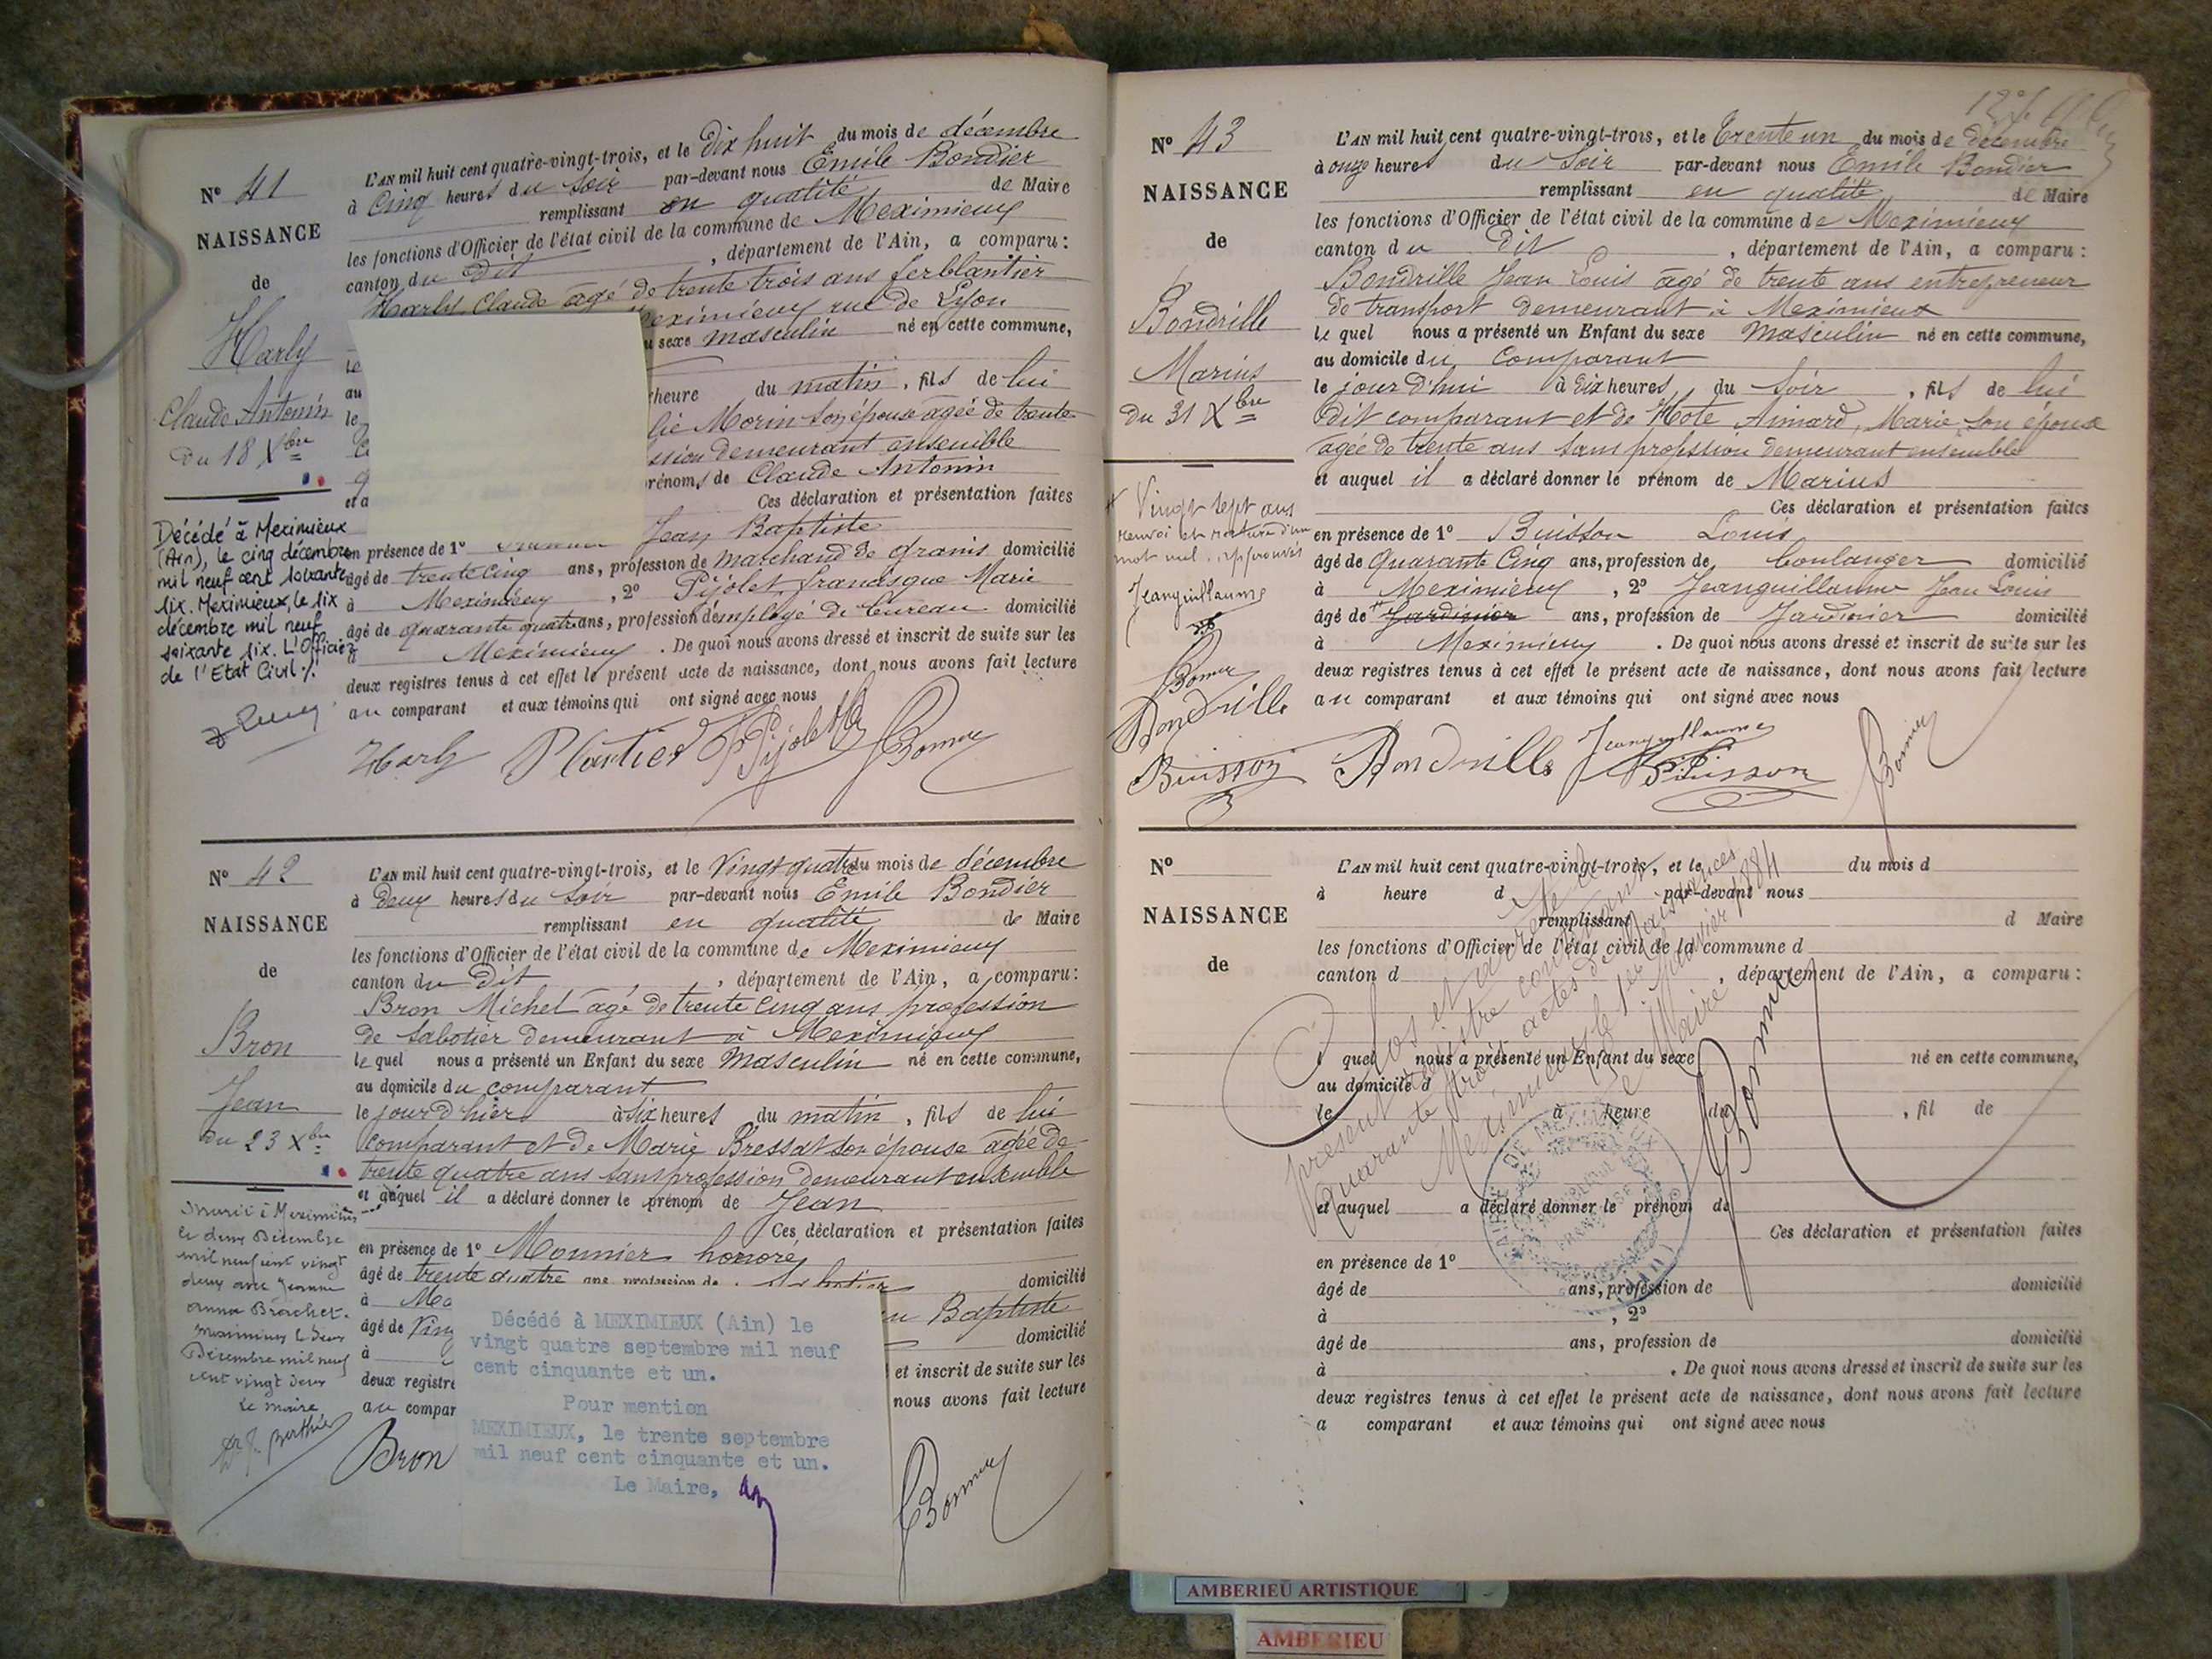 N° 41
NAISSANCE
de
Harly
Claude Antonin
Du 18 Xbre
Décédé à Meximieux
(Ain), le cinq décembre
mil neuf cent soixante
six. Meximieux, le six
décembre mil neuf
soixante six. L'Officier
de l'Etat Civil ./.
L'AN mil huit cent quatre-vingt-trois, et le dix huit du mois de décembre
à Cinq heures du soir par-devant nous Emile Bondier
remplissant en qualité de Maire
les fonctions d'Officier de l'état civil de la commune de Meximieux
canton du dit , département de l'Ain, a comparu :
Harly Claude âgé de trente trois ans ferblantier
Meximieux rue de Lyon
sexe masculin né en cette commune,
au
le heure du matin , fils de lui
Morin son épouse agée de trente
demeurant ensemble
et a prénoms de Claude Antonin
Ces déclaration et présentation faites
en présence de 1° Jean Baptiste
âgé de trente cinq ans, profession de marchand de grains domicilié
à Meximieux , 2° Pijolet francisque Marie
âgé de quarante quatre ans, profession d'employé de bureau domicilié
à Meximieux . De quoi nous avons dressé et inscrit de suite sur les
deux registres tenus à cet effet le présent acte de naissance, dont nous avons fait lecture
au comparant et aux témoins qui ont signé avec nous
Harly Plantier Pijolet
N° 42
NAISSANCE
de
Bron
Jean
du 23 Xbre
Marié à Meximieux
le deux Décembre
mil neuf cent vingt
deux avec Jeanne
Anna Brachet.
Meximieux le deux
Décembre mil neuf
cent vingt deux
Le Maire
Berthier
L'AN mil huit cent quatre-vingt-trois, et le Vingt quatre du mois de décembre
à deux heures du soir par-devant nous Emile Bondier
remplissant en qualité de Maire
les fonctions d'Officier de l'état civil de la commune de Meximieux
canton du dit , département de l'Ain, a comparu :
Bron Michel âgé de trente cinq ans profession
de sabotier demeurant à Meximieux
le quel nous a présenté un Enfant du sexe Masculin né en cette commune,
au domicile du comparant
le jour d'hier à six heures du matin , fils de lui
comparant et de Marie Bressat son épouse agée de
trente quatre ans sans profession demeurant ensemble
et auquel il a déclaré donner le prénom de Jean
Ces déclaration et présentation faites
en présence de 1° Mounier honoré
âgé de trente quatre ans, profession de domicilié
à Baptiste
âgé de domicilié
à et inscrit de suite sur les
deux registres nous avons fait lecture
au compar
Bron
Décédé à MEXIMIEUX (Ain) le
vingt quatre septembre mil neuf
cent cinquante et un.
Pour mention
MEXIMIEUX, le trente septembre
mil neuf cent cinquante et un.
Le Maire,
N° 43
NAISSANCE
de
Bondrille
Marius
Du 31 Xbre
Vingt sept ans
renvoi et rature d'un
mot nul approuvés
Jeanguillaume
Bondrille
Buisson
L'AN mil huit cent quatre-vingt-trois, et le Trente un du mois de décembre
à onze heures du soir par-devant nous Emile Bondier
remplissant en qualité de Maire
les fonctions d'Officier de l'état civil de la commune de Meximieux
canton du dit , département de l'Ain, a comparu :
Bondrille Jean Louis âgé de trente ans entrepreneur
de transport demeurant à Meximieux
le quel nous a présenté un Enfant du sexe Masculin né en cette commune,
au domicile du comparant
le jour d'hui à dix heures du soir , fils de lui
dit comparant et de Hote Aimard, Marie son épouse
agée de trente ans sans profession demeurant ensemble
et auquel il a déclaré donner le prénom de Marius
Ces déclaration et présentation faites
en présence de 1° Buisson Louis
âgé de Quarante Cinq ans, profession de boulanger domicilié
à Meximieux , 2° Jeanguillaume Jean Louis
âgé de Jardinier ans, profession de Jardinier domicilié
à Meximieux . De quoi nous avons dressé et inscrit de suite sur les
deux registres tenus à cet effet le présent acte de naissance, dont nous avons fait lecture
au comparant et aux témoins qui ont signé avec nous
Bondrille Jeanguillaume Buisson
N°
NAISSANCE
de
L'AN mil huit cent quatre-vingt-trois, et le du mois d
à heure d par-devant nous
remplissant d Maire
les fonctions d'Officier de l'état civil de la commune d
canton d , département de l'Ain, a comparu :
l quel nous a présenté un Enfant du sexe né en cette commune,
au domicile d
le à heure du , fil de
et auquel a déclaré donner le prénom de
Ces déclaration et présentation faites
en présence de 1°
âgé de ans, profession de domicilié
à , 2°
âgé de ans, profession de domicilié
à . De quoi nous avons dressé et inscrit de suite sur les
deux registres tenus à cet effet le présent acte de naissance, dont nous avons fait lecture
a comparant et aux témoins qui ont signé avec nous
Clos et arrêté le
présent registre contenant
Quarante trois actes de Naissances
Meximieux le 1er Janvier 1884
Le Maire
AMBERIEU ARTISTIQUE
AMBERIEU